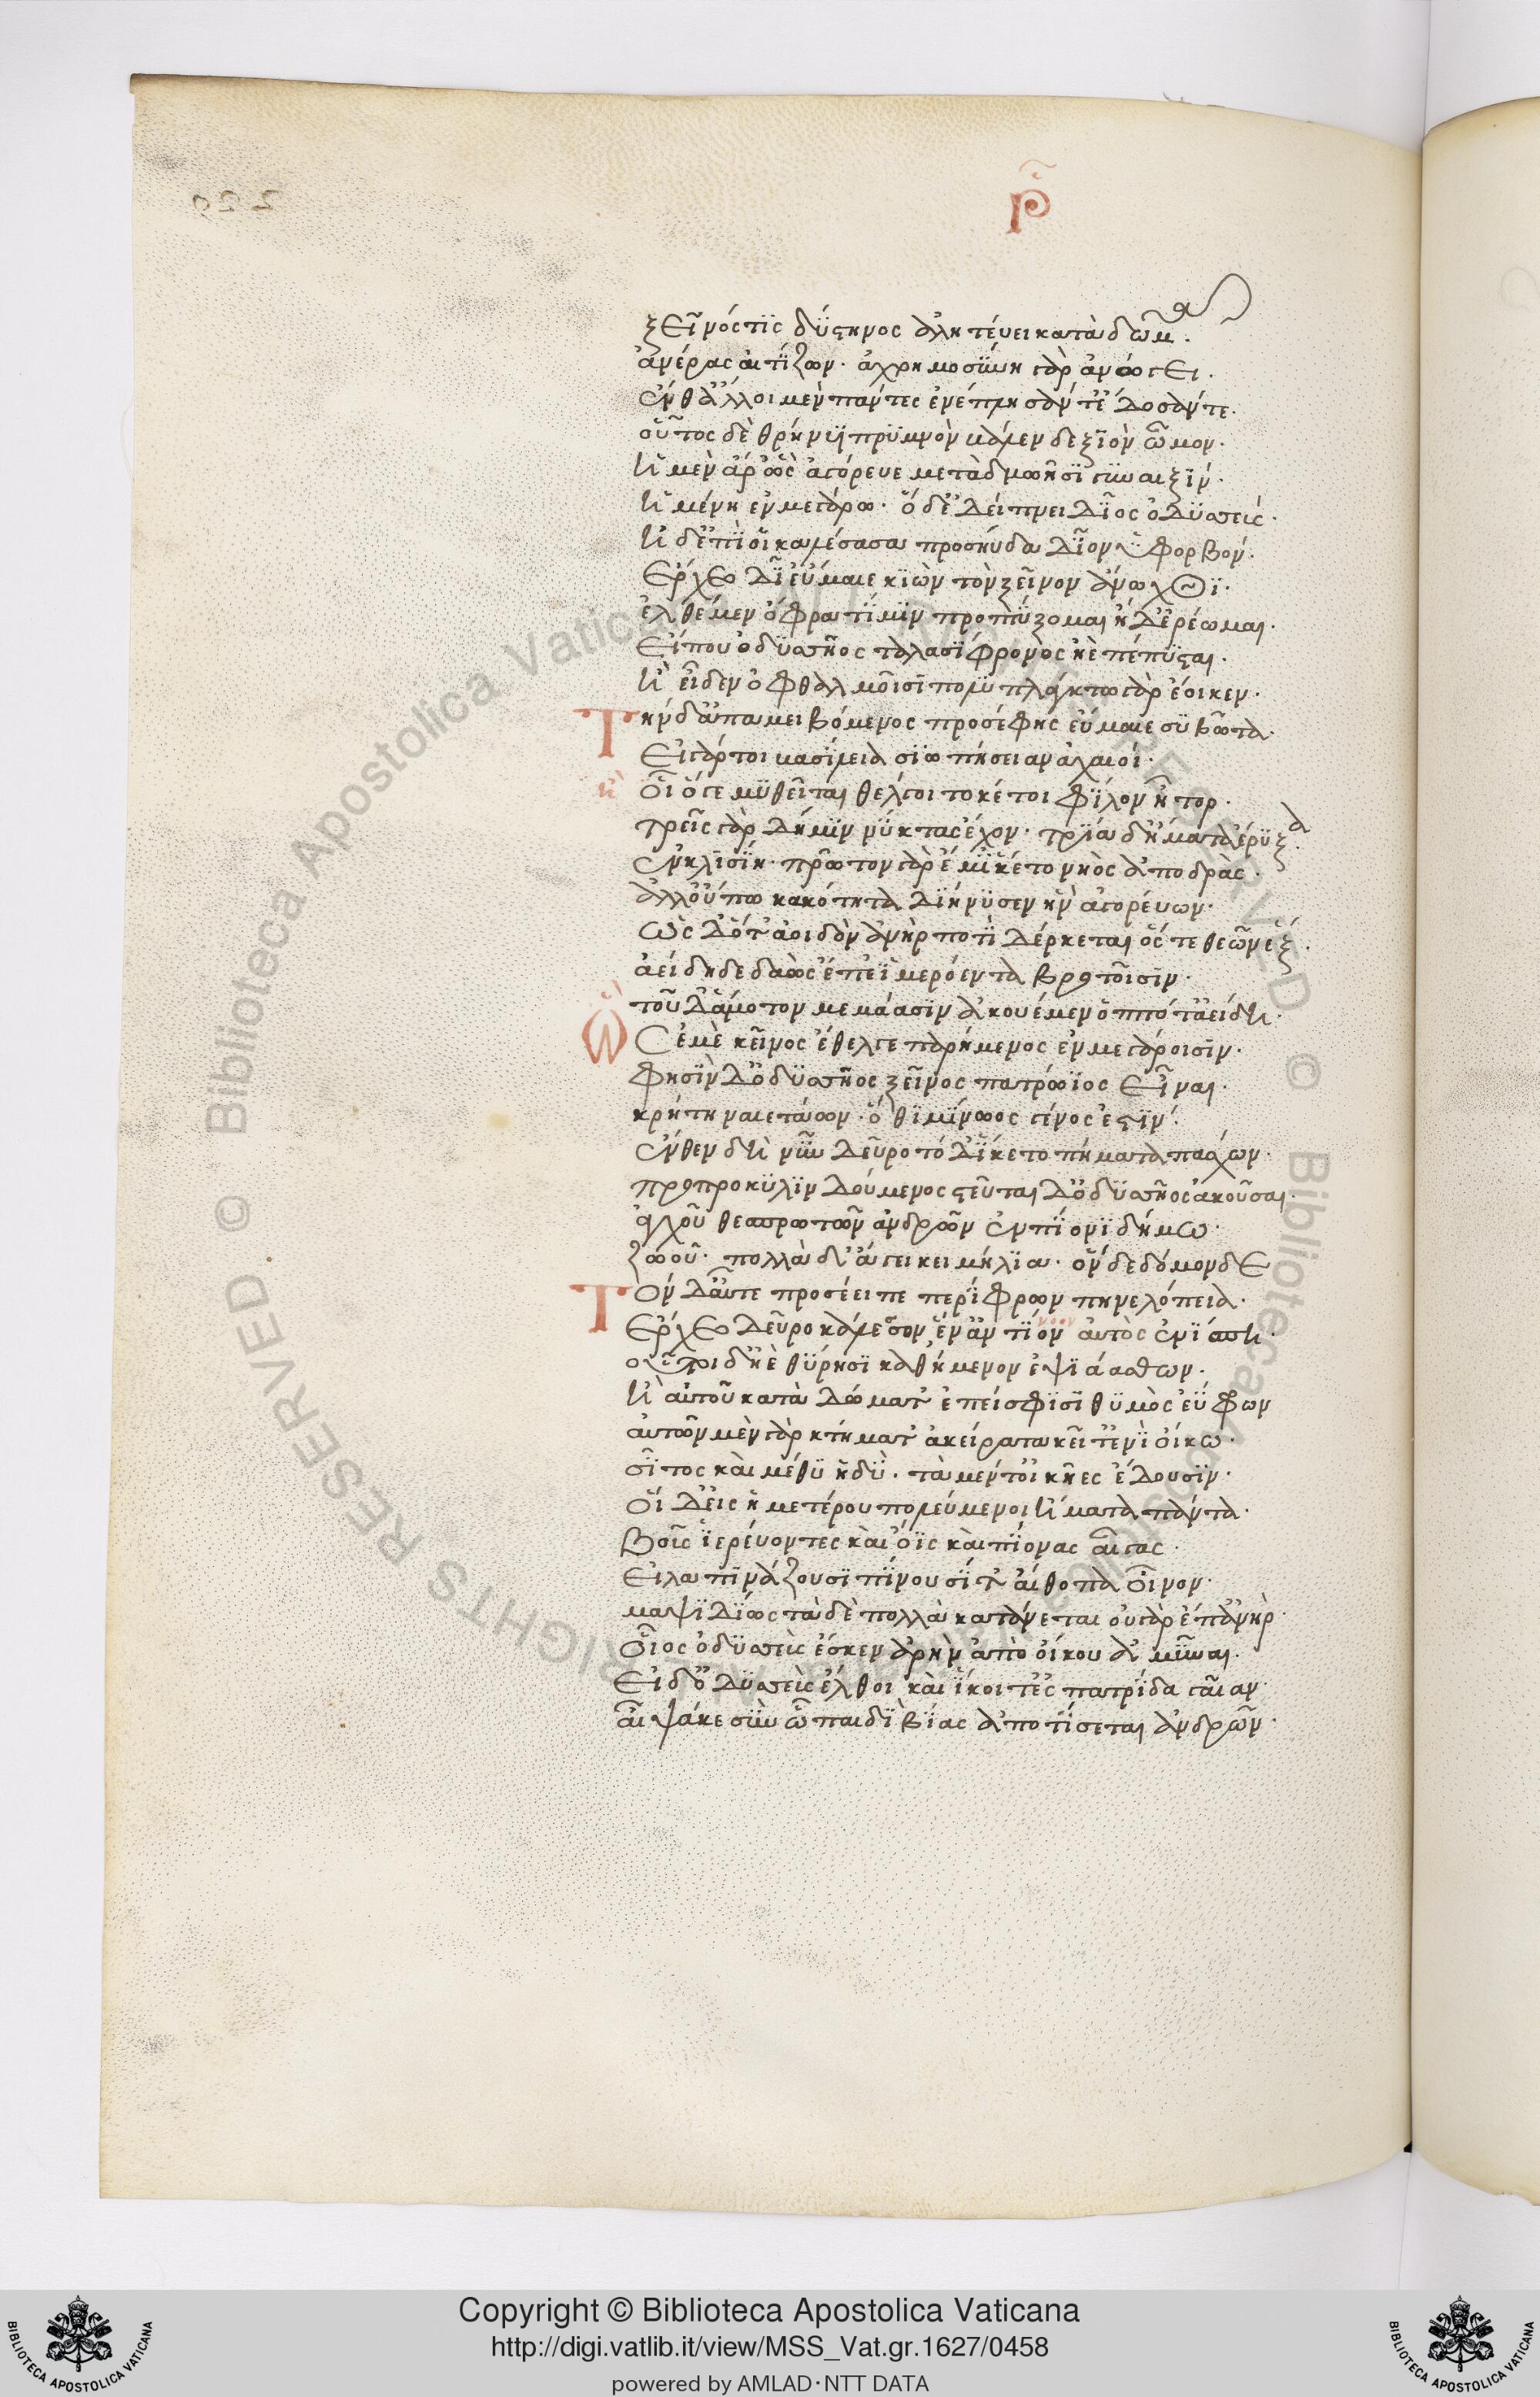 ρ
ξεῖνός τϊς δύ̈ςηνος ἀλητέυει κατὰ δῶμα.
ἀνέρας ἀιτΐζων· ἀχρημοσύ̈νη γὰρ ἀνώγει.
ἔνθ' ἄλλοι μὲν πάντες ἐνέπλησάν τ' ἔδοσάν τε.
οὗτος δὲ θρήνυϊ πρϋμνὸν βάλεν δεξϊὸν ὦμον.
ἡ μὲν ἄρ' ὣς ἀγόρευε μετὰ δμωῆσϊ γυναιξΐν.
ἡμένη ἐν μεγάρω· ὅ δ' ἐδέιπνει δῖος ὀδϋσσεύς.
ἡ δ' ἐπϊ οἷ καλέσασα προσηύδα δῖον ὑφορβόν.
ἔρχεο δῖ' ἐύμαιε κϊὼν τὸν ξεῖνον ἄνωχθϊ.
ἐλθέμεν ὄφρα τΐ μϊν προσπτύ̈ξομαι ἠδ' ἐρέωμαι.
εἴ που ὀδϋσσῆος ταλασΐφρονὸς ἠὲ πέπϋςαι.
ἢ ἴδεν ὀφθαλμοῖσϊ πολϋπλάγκτω γὰρ ἔοικεν.
Τὴν δ' ἀπαμειβόμενος προσέφης ἐύμαιε σϋβῶτα.
εἰ γάρ τοι βασΐλεια σϊωπήσειαν ἀχαιοΐ.
οἷ' ὅγε μϋθεῖται θέλγοιτό κέ τοι φΐλον ἦτορ.
τρεῖς γὰρ δή μϊν νύ̈κτας ἔχον· τρΐα δ' ἤματ' ἔρϋξα
ἐν κλϊσΐη· πρῶτον γὰρ ἔμ' ΐκετο νηὸς ἀποδράς.
ἀλλ' οὔπω κακότητα δϊήνϋσεν ἣν ἀγορέυων.
ὡς δ' ὅτ' ἀοιδὸν ἀνὴρ ποτϊ δέρκεται ὅς τε θεῶν ἒξ.
ἀείδη δεδαὼς ἔπε' ΐμερόεντα βροτοῖσϊν.
τοῦ δ' ἄμοτον μεμάασϊν ἀκουέμεν ὁππότ' ἀείδη.
Ὣς ἐμὲ κεῖνος ἔθελγε παρήμενος ἐν μεγάροισϊν.
φησϊν δ' ὀδϋσσῆος ξεῖνος πατρώϊος εἶναι.
κρήτη ναιετάων· ὅθϊ μΐνωος γένος ἐςΐν.
ἔνθεν δὴ νῦν δεῦρο τόδ' ΐκετο πήματα πάσχων.
προπροκϋλϊνδούμενος ςεῦται δ' ὀδϋσσῆος ἀκοῦσαι.
ἀγχοῦ θεσπρωτῶν ἀνδρῶν ἐν πΐονϊ δήμω.
ζωοῦ· πολλὰ δ' ἄγει κειμήλϊα· ὅνδε δόμονδε
Τὸν δ' αὖτε προσέειπε περΐφρων πηνελόπεια.
ἔρχεο δεῦρο κάλεσσον ἵν' ἀντΐον ἀυτὸς ἐνΐσπη.
οὗτοι δ' ἠὲ θϋρησϊ καθήμενοι ἐψϊαάσθων.
ἢ ἀυτοῦ κατὰ δώματ' ἐπέι σφϊσϊ θϋμὸς ἐύ̈φρων
ἀυτῶν μὲν γὰρ κτήματ' ἀκήρατα κεῖτ' ἐνϊ ὀίκω.
σῖτος κὰι μέθϋ ἡδϋ· τὰ μέν τ' ὀικῆες ἔδουσϊν.
ὅι δ' ἐις ἡμετέρου πολεύμενοι ἤματα πάντα.
βοῦς ΐερέυοντες κὰι ὄϊς κὰι πΐονας αἶγας.
ἐιλαπϊνάζουσϊ πΐνουσΐ τ' ἄιθοπα οἶνον.
μαψϊδΐως τὰ δὲ πολλὰ κατάνεται ὀυ γὰρ ἔπ' ἀνὴρ
οἷος ὀδϋσσεὺς ἔσκεν ἀρὴν ἀπὸ ὀίκου ἀμῦναι.
ἐι δ' ὀδϋσσεὺς ἔλθοι κὰι ΐκοιτ' ἐς πατρΐδα γαῖαν.
αἶψά κε σὺν ὧ παιδϊ βΐας ἀποτΐσεται ἀνδρῶν.
Copyright © Biblioteca Apostolica Vaticana
http://digi.vatlib.it/view/MSS_Vat.gr.1627/0458
powered by AMLAD·NTT DATA